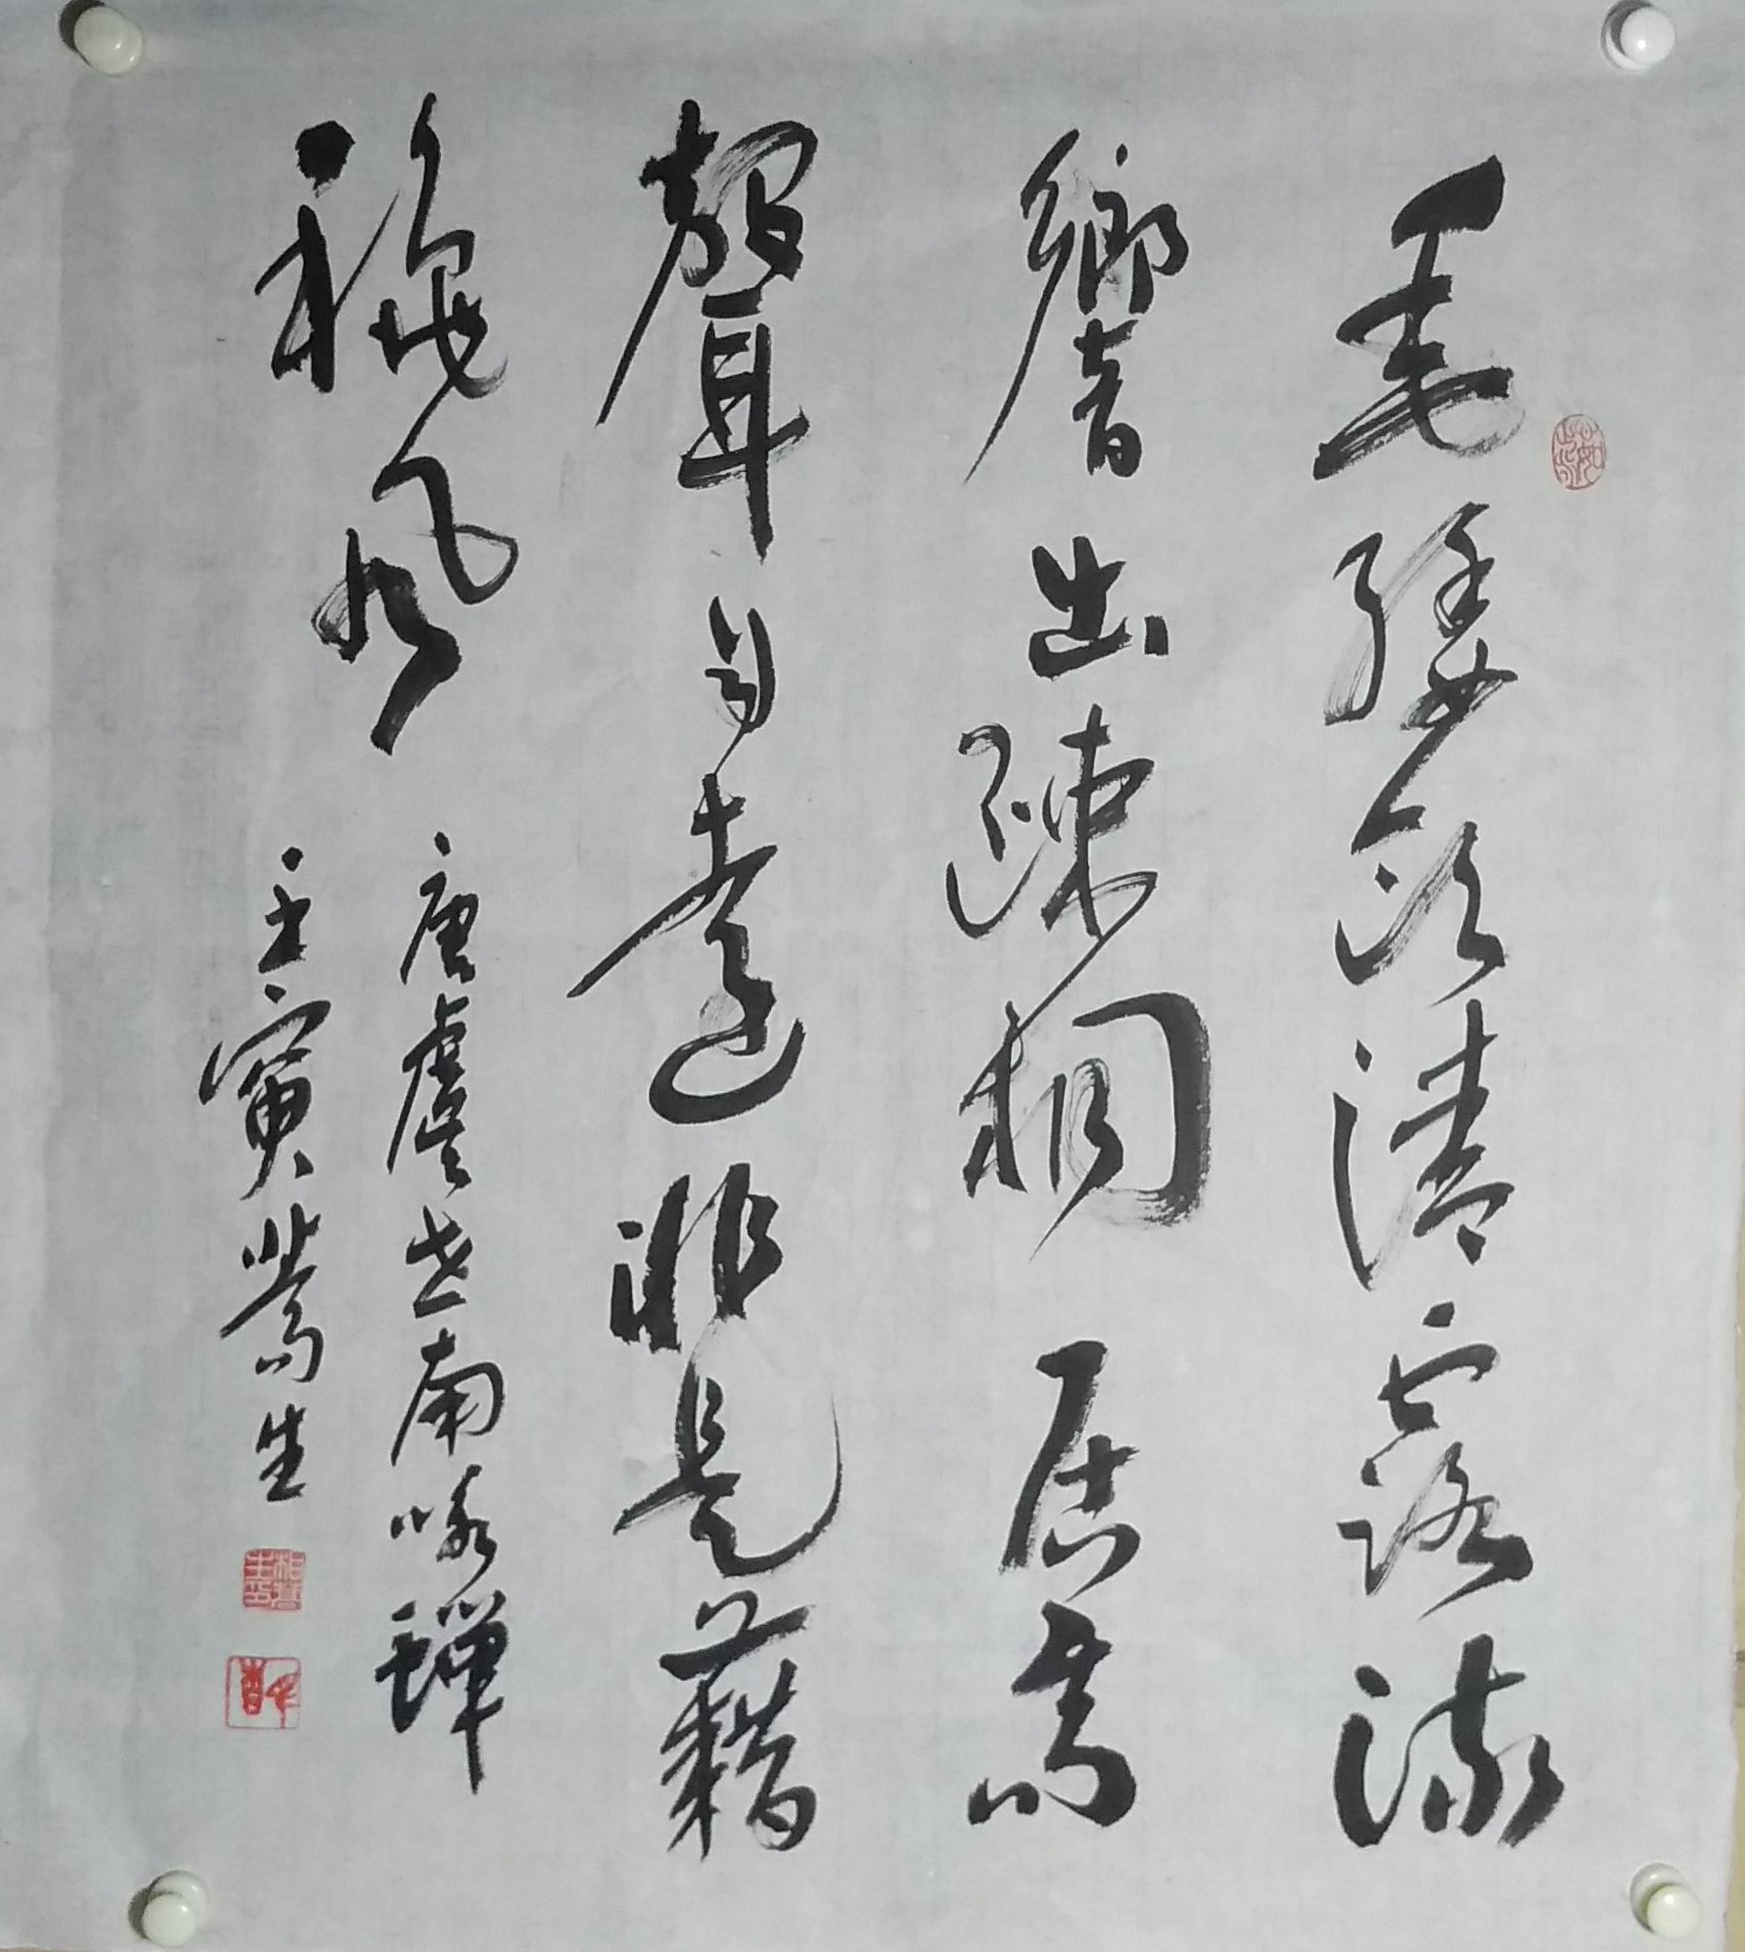 垂緌飲清露流
響出疎桐居高
聲自遠非是藉
穐風
唐虞世南咏蟬
壬寅 生